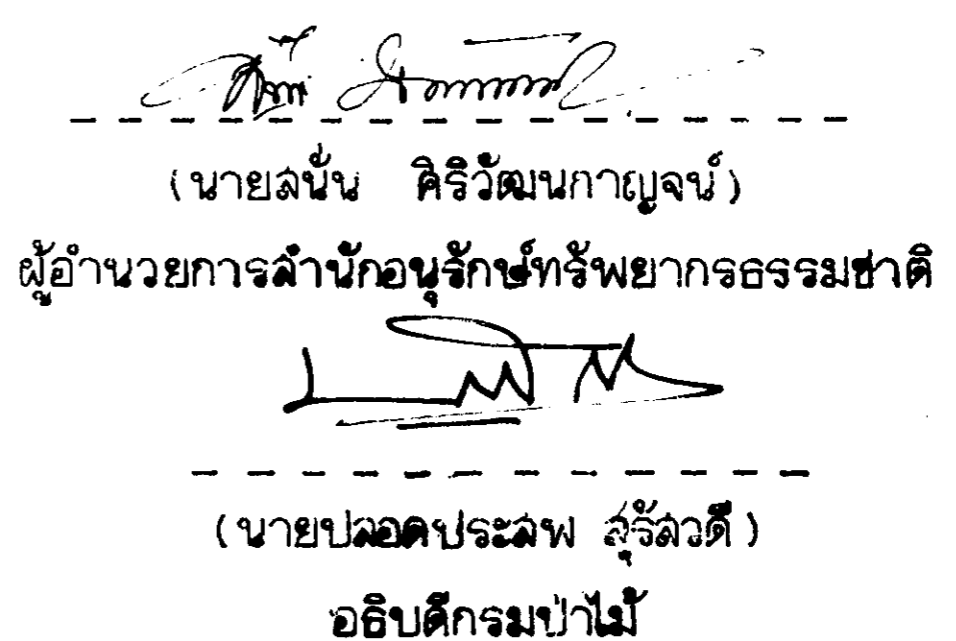 (นายสนั่น ศิริวัฒนกาญจน์)
ผู้อำนวยการสำนักอนุรักษ์ทรัพยากรธรรมชาติ
(นายปลอดประสพ สุรัสวดี)
อธิบดีกรมป่าไม้